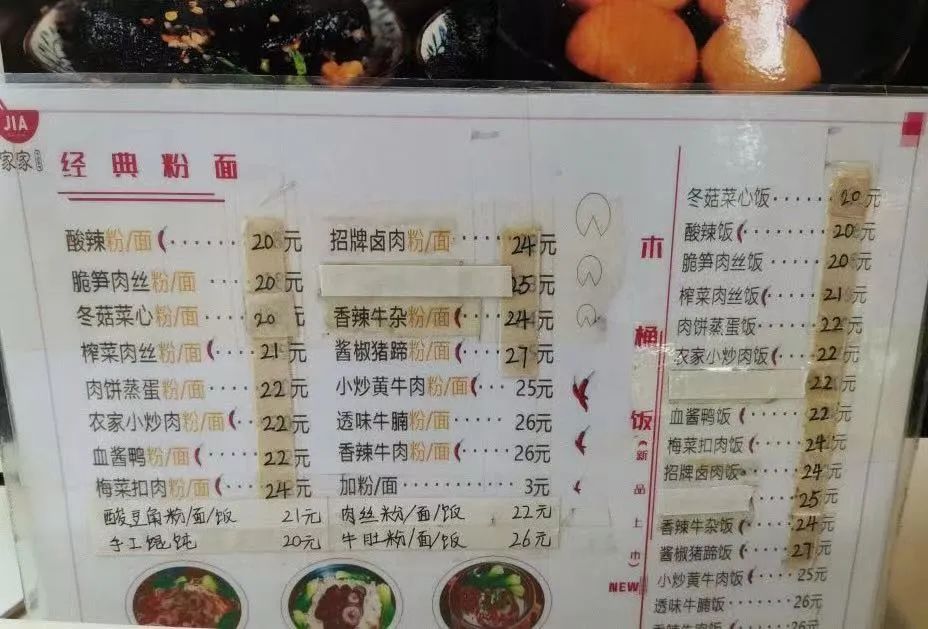 JIA
家家
经典粉面
酸辣粉/面······20元
脆笋肉丝粉/面····20元
冬菇菜心粉/面····20元
榨菜肉丝粉/面····21元
肉饼蒸蛋粉/面····22元
农家小炒肉粉/面···22元
血酱鸭粉/面·····22元
梅菜扣肉粉/面····24元
招牌卤肉粉/面····24元
25元
香辣牛杂粉/面····24元
酱椒猪蹄粉/面····27元
小炒黄牛肉粉/面···25元
透味牛腩粉/面····26元
香辣牛肉粉/面····26元
加粉/面·······3元
酸豆角粉/面/饭 21元
手工馄饨 20元
肉丝粉/面/饭 22元
牛肚粉/面/饭 26元
木桶饭(新品上市)
NEW
冬菇菜心饭······20元
酸辣饭········20元
脆笋肉丝饭······20元
榨菜肉丝饭······21元
肉饼蒸蛋饭······22元
农家小炒肉饭·····22元
22元
血酱鸭饭·······22元
梅菜扣肉饭······24元
招牌卤肉饭······24元
25元
香辣牛杂饭······24元
酱椒猪蹄饭······27元
小炒黄牛肉饭·····25元
透味牛腩饭······26元
香辣牛肉饭······26元